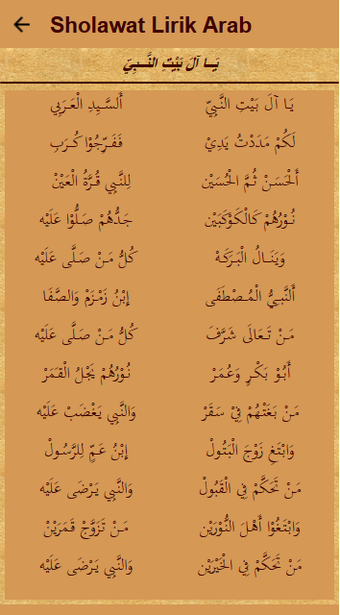 Sholawat Lirik Arab
يَـا آلَ بَيْتِ النَّـبِيّ
يَـا آلَ بَيْتِ النَّبِيّ أَلسَّـيِدِ الْعَـرَبِي
لَكُمْ مَدَدْتُ يَدِيْ فَفَـرِّجُوْا كُـرَبِ
أَلْحَسَنْ ثُمَّ الْحُسَيْن لِلنَّبِي قُـرَّةُ الْعَيْنْ
نُـوْرُهُمْ كَالْكَوْكَبَيْن جَـدُّهُمْ صَلُّوْا عَلَيْه
وَيَنَـالُ الْبَـرَكَهْ كُلُّ مَـنْ صَلَّى عَلَيْه
أَلنَّبِيُّ الْمُـصْطَفَى إِبْنُ زَمْـزَمْ وَالصَّفَا
مَـنْ تَـعَالَى شَرَّفَ كُلُّ مَـنْ صَلَّى عَلَيْه
أَبُـوْ بَكْرٍ وَعُمَرْ نُـوْرُهُمْ يَخْجُلُ الْقَمَرْ
مَـنْ بَغَتْـهُمْ فِيْ سَقَرْ وَالنَّبِي يَغْضَبْ عَلَيْه
وَابْتَغِ زَوْجَ الْبَتُولْ إِبْنُ عَـمٍّ لِلرَّسُـولْ
مَـنْ تَحَكَّمْ فِي الْقَبُولْ وَالنَّبِي يَـرْضَى عَلَيْه
وَابْتَغُوْا أَهْـلَ النُّوْرَيْن مَـنْ تَزَوَّجْ قَمَـرَيْنْ
مَـنْ تَحَكَّمْ فِي الْخَيْرَيْن وَالنَّبِي يَـرْضَى عَلَيْه